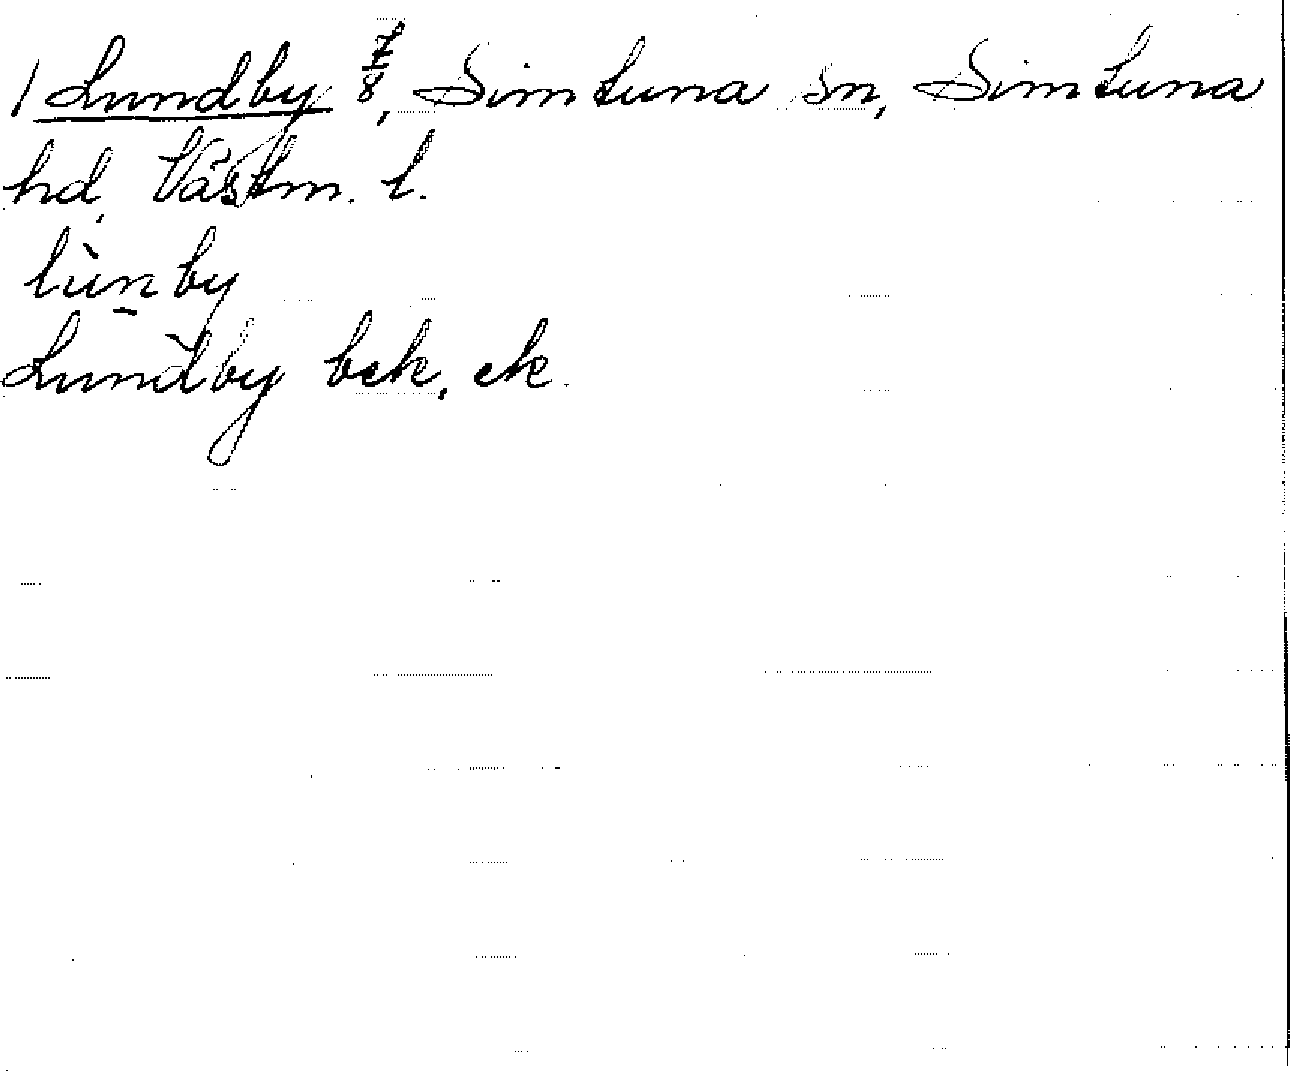 1 Lundby 7/8, Simtuna sn, Simtuna
hd, Västm. l.
lùn̠by
Lundby bek, ek.